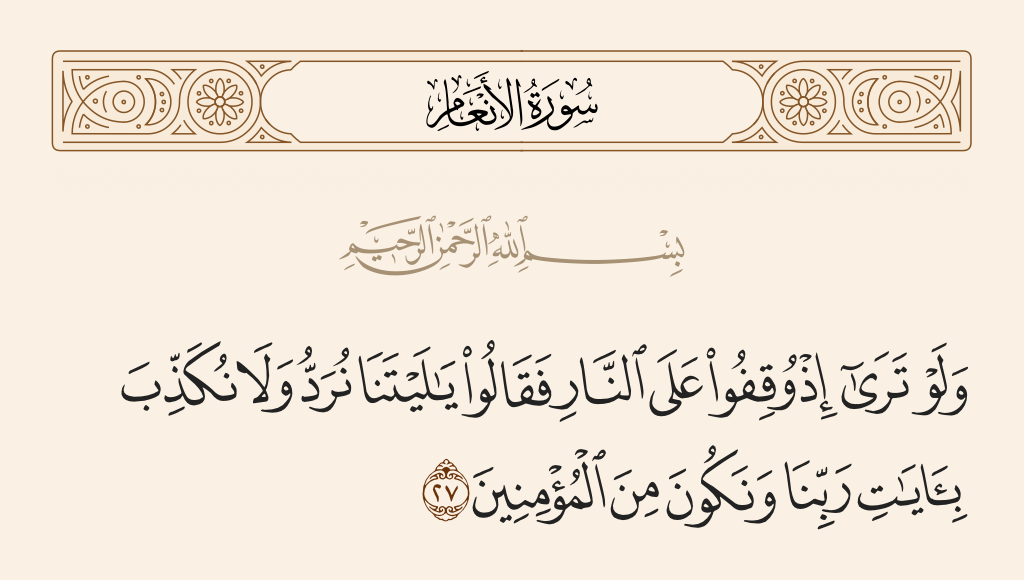 سُورَةُ الأَنْعَامِ
بِسْمِ ٱللَّهِ ٱلرَّحْمَٰنِ ٱلرَّحِيمِ
وَلَوْ تَرَىٰٓ إِذْ وُقِفُوا۟ عَلَى ٱلنَّارِ فَقَالُوا۟ يَٰلَيْتَنَا نُرَدُّ وَلَا نُكَذِّبَ
بِـَٔايَٰتِ رَبِّنَا وَنَكُونَ مِنَ ٱلْمُؤْمِنِينَ ٢٧